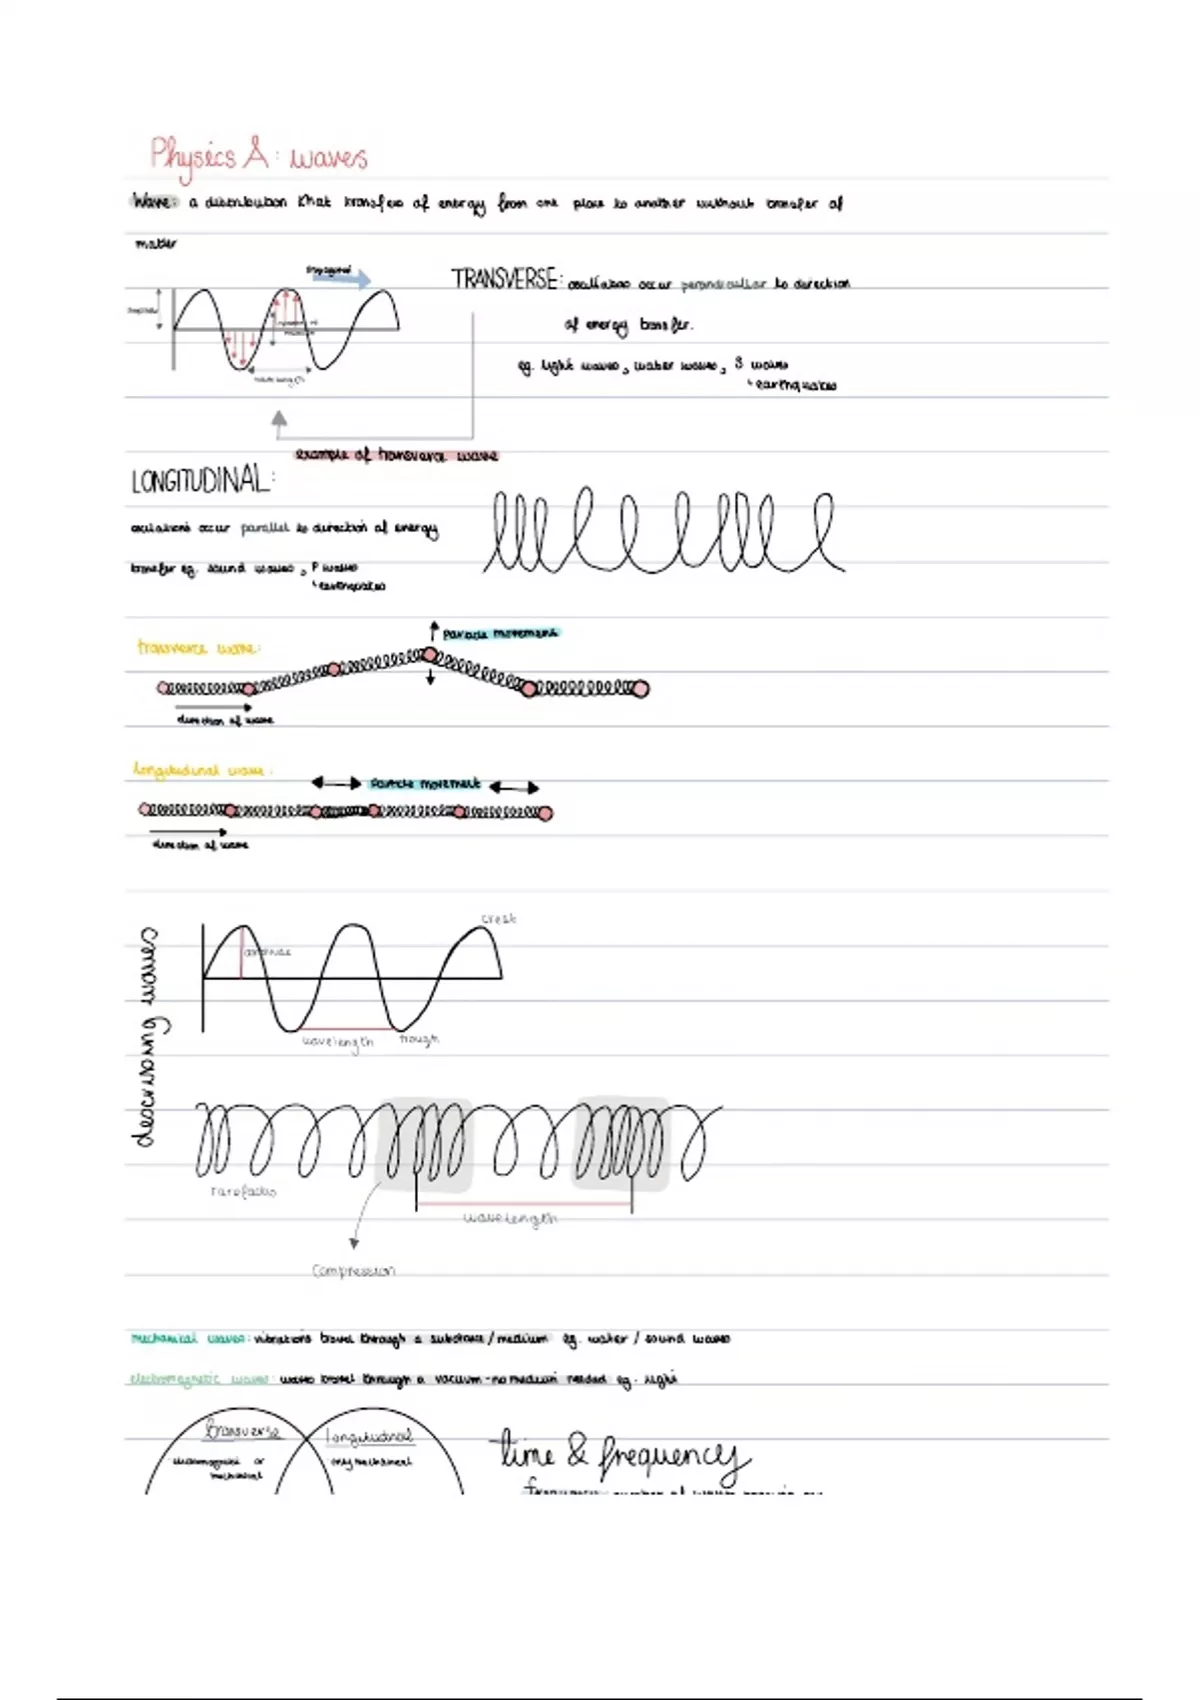 Physics A: waves
Wave: a distribution that transfers of energy from one place to another without transfer of
matter
TRANSVERSE: oscillations occur perpendicular to direction
of energy transfer.
eg. light waves, water waves, S waves
↳ earthquakes
wavelength
example of transverse wave
LONGITUDINAL:
occur parallel to direction of energy
transfer eg. sound waves, P waves
↳ earthquakes
transverse wave:
particle movement
direction of wave
longitudinal wave:
particle movement
direction of wave
describing waves
crest
amplitude
wavelength
trough
wavelength
compression
mechanical waves: vibrations travel through a substance/medium eg. water / sound waves
electromagnetic waves: waves travel through a vacuum - no medium needed eg. light
transverse
longitudinal
electromagnetic or
mechanical
only mechanical
time & frequency
frequency: number of waves passing